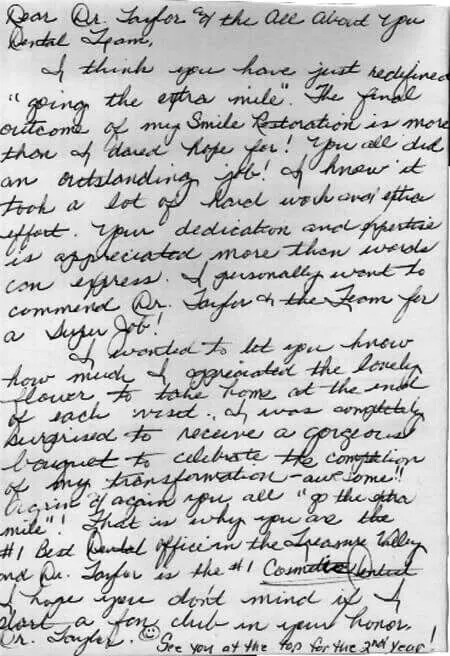 Dear Dr. Taylor & the All About You
Dental Team,
I think you have just redefined
"going the extra mile". The final
outcome of my Smile Restoration is more
than I dared hope for! You all did
an outstanding job! I know it
took a lot of hard work and extra
effort. Your dedication and expertise
is appreciated more than words
can express. I personally want to
commend Dr. Taylor & the Team for
a Super Job!
I wanted to let you know
how much I appreciated the lovely
flower to take home at the end
of each visit. I was completely
surprised to receive a gorgeous
bouquet to celebrate the completion
of my transformation - awesome!!
Again & again you all "go the extra
mile"! That is why you are the
#1 Best Dental office in the Treasure Valley
and Dr. Taylor is the #1 Cosmetic Dentist
I hope you don't mind if I
start a fan club in your honor.
Dr. Taylor. ☺ See you at the top for the 2nd Year!